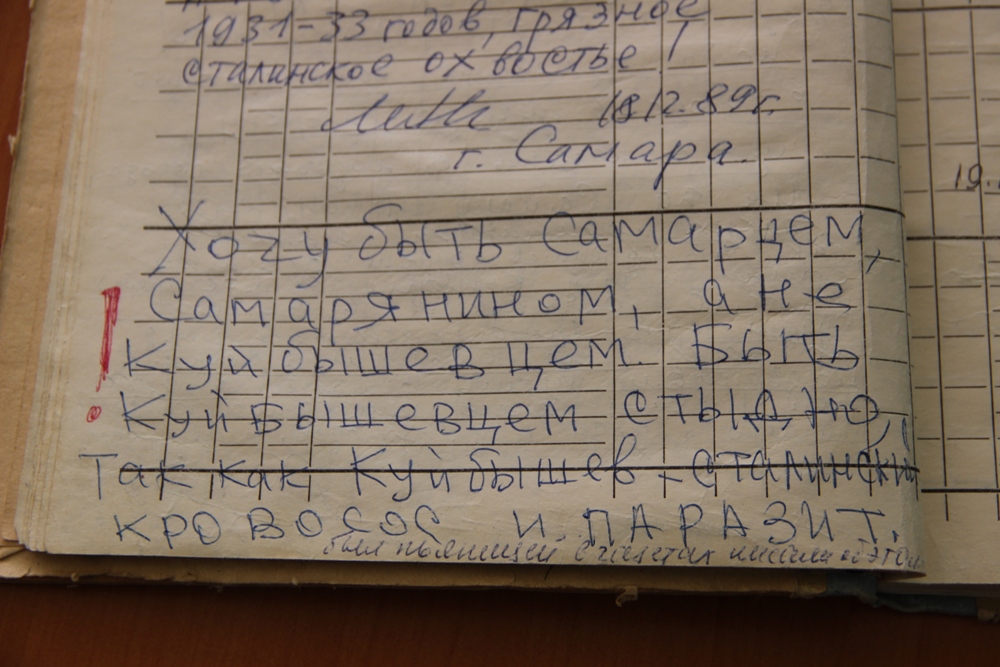 1931-33 годов, грязное
сталинское охвостье!
18.12.89г.
г. Самара.
19.
Хочу быть Самарцем,
Самарянином, а не
Куйбышевцем. Быть
Куйбышевцем стыдно,
Так как Куйбышев - сталинский
кровосос и ПАРАЗИТ.
был пьяницей в газетах писали об этом